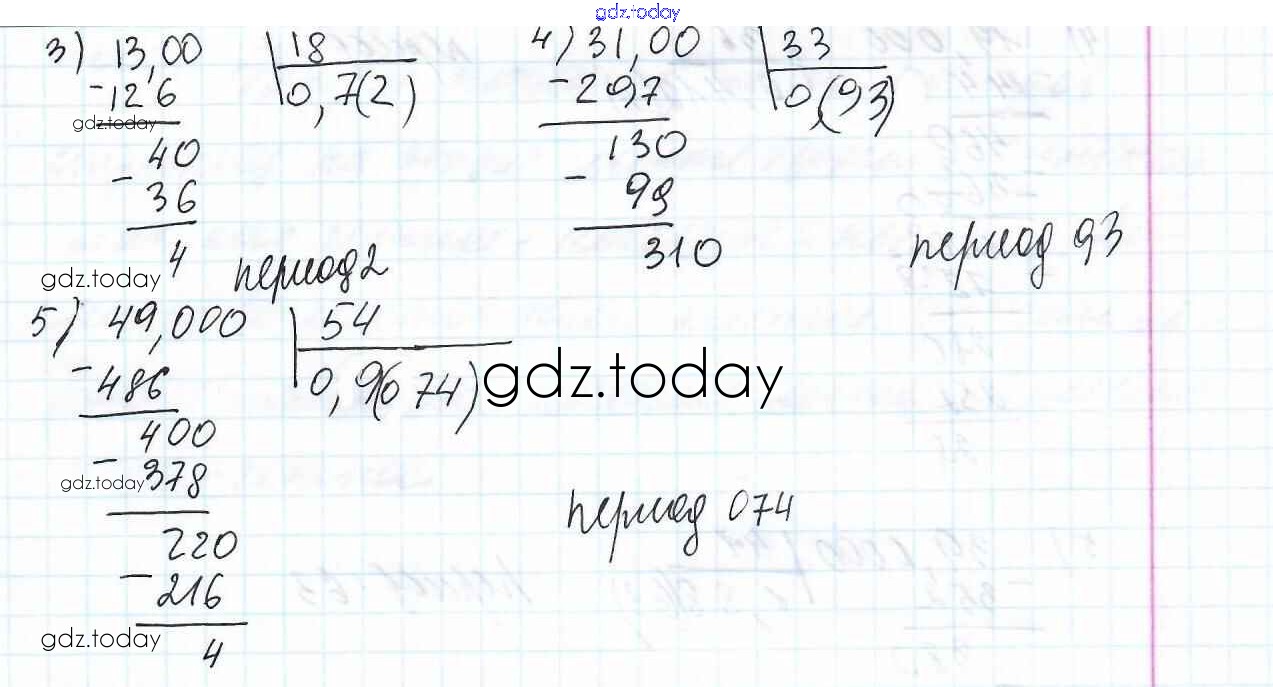 gdz.today
3) 13,00 18
-126 0,7(2)
gdz.today
40
- 36
4
gdz.today
период 2
4) 31,00 33
-297 0,(93)
130
- 99
310
период 93
5) 49,000 54
-486 0,9(074)
gdz.today
400
- 378
gdz.today
220
- 216
4
gdz.today
период 074